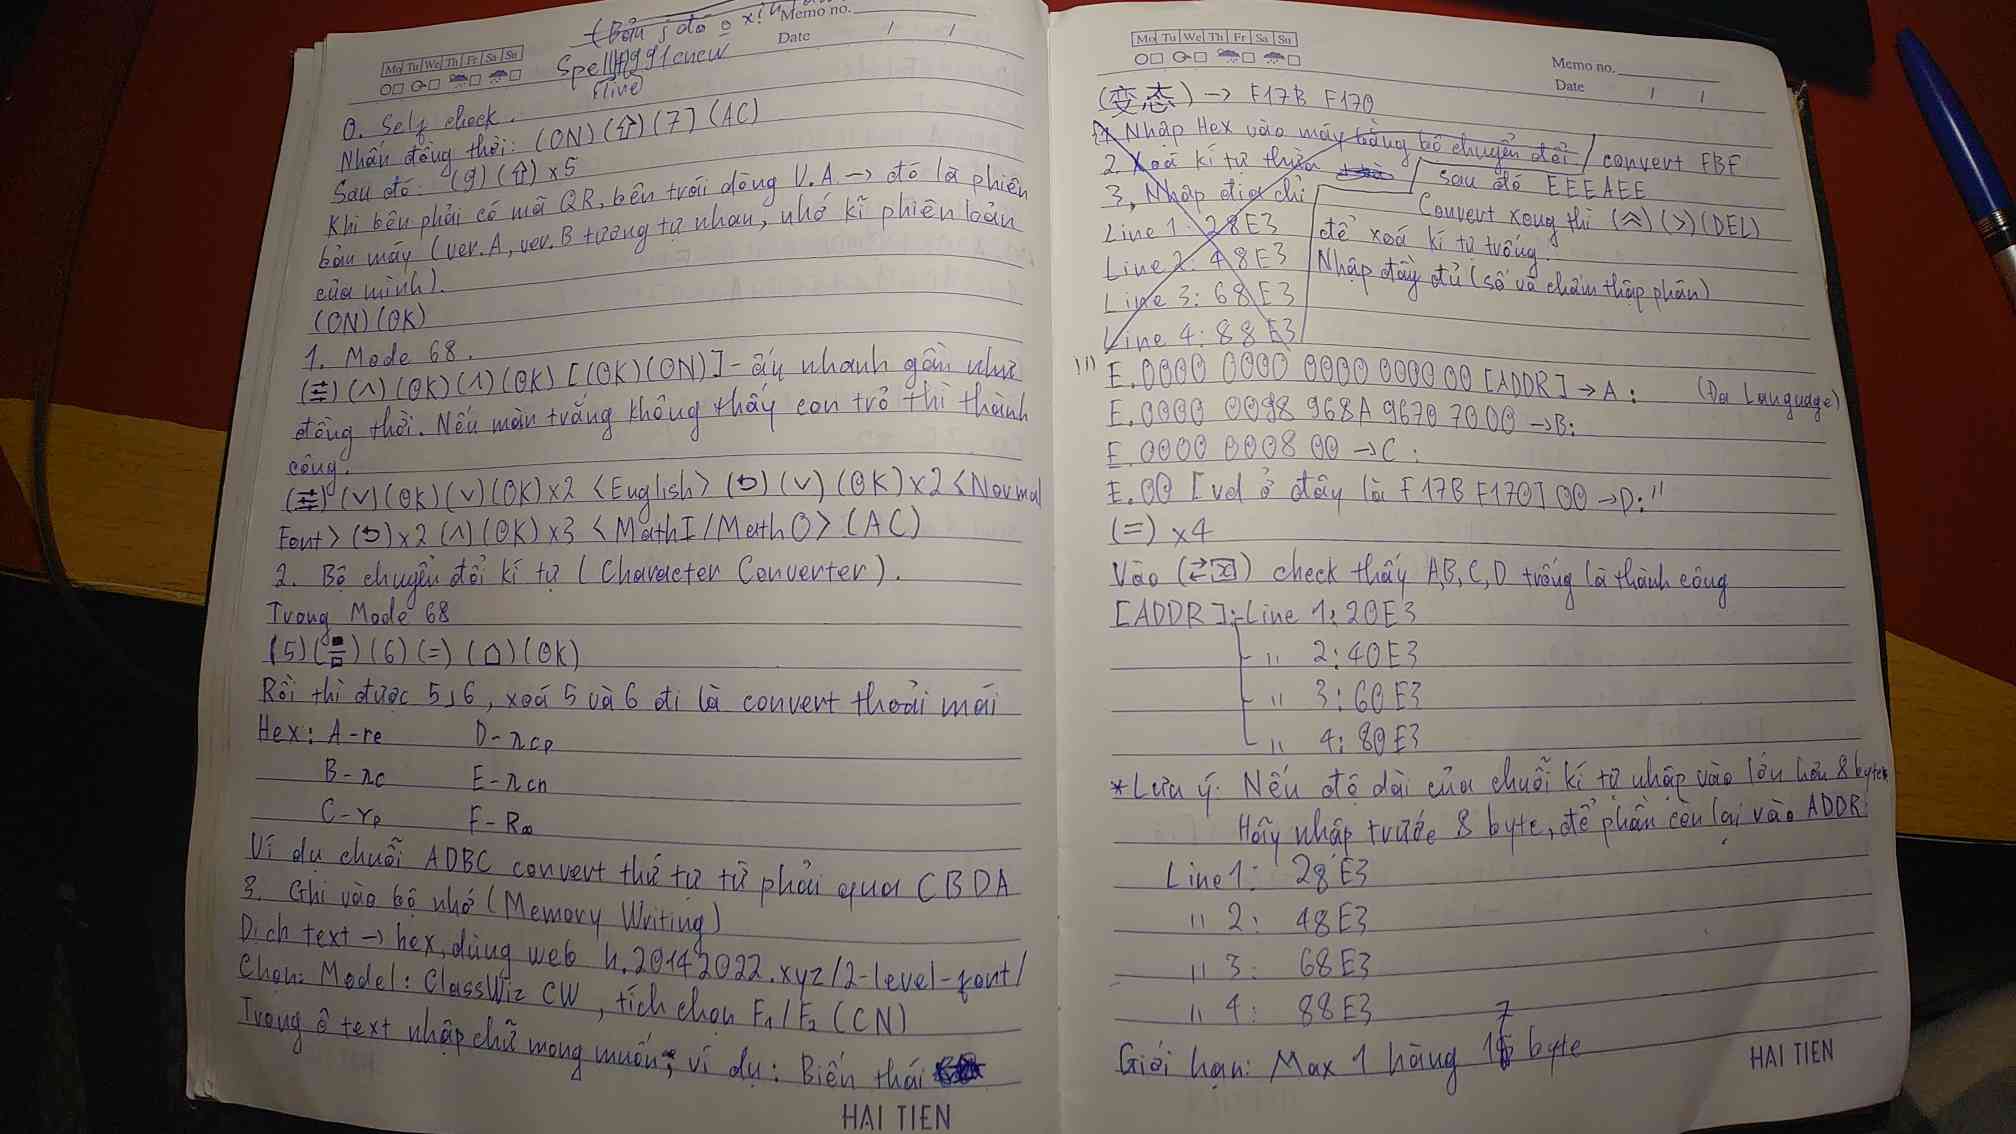 (Bản j đó
Memo no.
Date / /
Mo Tu We Th Fr Sa Su
Spell
Fline
0. Self check.
Nhấn đồng thời: (ON) (⇧) (7) (AC)
Sau đó: (9) (⇧) x5
Khi bên phải có mã QR, bên trái dòng V.A → đó là phiên
bản máy (ver.A, ver.B tương tự nhau, nhớ kĩ phiên bản
của mình).
(ON) (OK)
1. Mode 68.
(⇄) (∧) (OK) (∧) (OK) [(OK) (ON)] - ấy nhanh gần như
đồng thời. Nếu màn trắng không thấy con trỏ thì thành
công.
(⇄) (∨) (OK) (∨) (OK) x2 <English> (⮌) (∨) (OK) x2 <Normal
Font> (⮌) x2 (∧) (OK) x3 <MathI/MathO> (AC)
2. Bộ chuyển đổi kí tự (Character Converter).
Trong Mode 68
(5) (■/□) (6) (=) (⌂) (OK)
Rồi thì được 5⌟6, xoá 5 và 6 đi là convert thoải mái
Hex: A - re D - λcp
B - λc E - λcn
C - rp F - R∞
Ví dụ chuỗi ADBC convert thứ tự từ phải qua CBDA
3. Ghi vào bộ nhớ (Memory Writing)
Dịch text → hex, dùng web h.20142022.xyz/2-level-font/
Chọn: Model: ClassWiz CW, tích chọn F1/F2 (CN)
Trong ô text nhập chữ mong muốn, ví dụ: Biến thái
HAI TIEN
Mo Tu We Th Fr Sa Su
Memo no.
Date / /
(变态) → F17B F170
1. Nhập Hex vào máy bằng bộ chuyển đổi / convert FBF
2. Xoá kí tự thừa sau đó EEEAEE
3, Nhập địa chỉ Convert xong thì (⌃⌃) (>) (DEL)
Line 1: 28E3 để xoá kí tự trống.
Line 2: 48E3 Nhập đầy đủ (số và chấm thập phân)
Line 3: 68E3
Line 4: 88E3
"" E.0000 0000 0000 0000 00 [ADDR] → A: (Đa Language)
E.0000 0098 968A 9670 7000 → B:
E.0000 0008 00 → C:
E.00 [vd ở đây là F17B F170] 00 → D: "
(=) x4
Vào (⇄𝑥) check thấy A,B,C,D trống là thành công
[ADDR]: Line 1: 20E3
" 2: 40E3
" 3: 60E3
" 4: 80E3
*Lưu ý: Nếu độ dài của chuỗi kí tự nhập vào lớn hơn 8 byte
Hãy nhập trước 8 byte, để phần còn lại vào ADDR
Line 1: 28E3
" 2: 48E3
" 3: 68E3
" 4: 88E3
Giới hạn: Max 1 hàng 17 byte
HAI TIEN